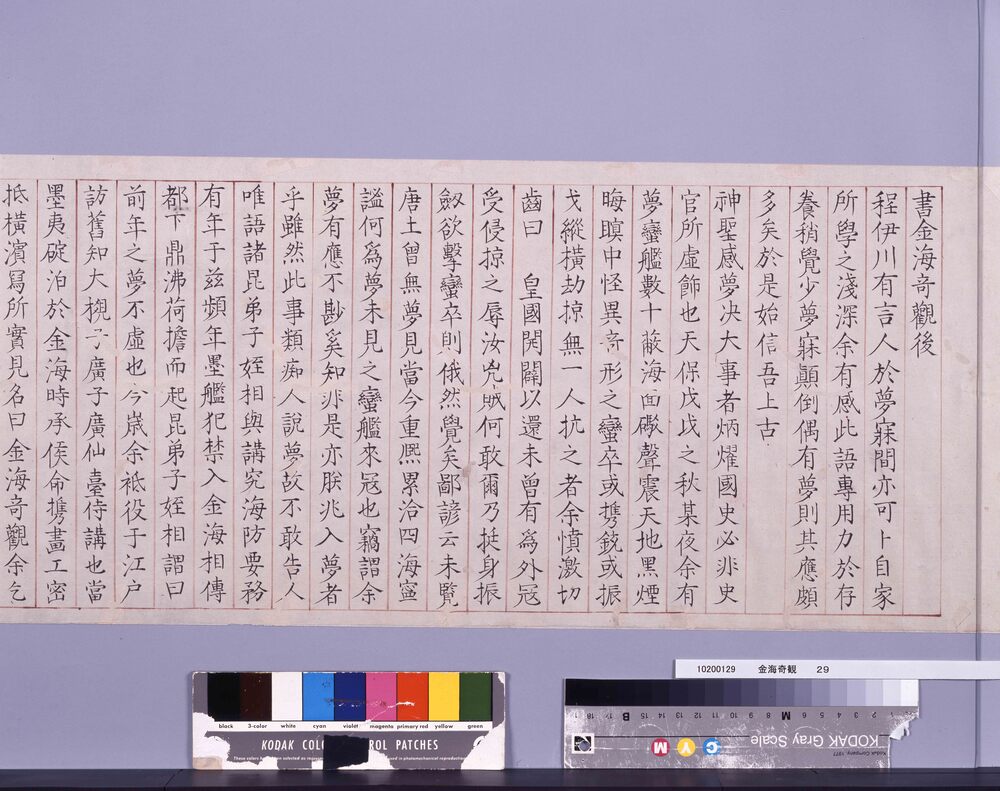 書金海奇觀後
程伊川有言人於夢寐間亦可卜自家
所學之淺深余有感此語專用力於存
養稍覺少夢寐顚倒偶有夢則其應頗
多矣於是始信吾上古
神聖感夢决大事者炳燿國史必非史
官所虛飾也天保戊戌之秋某夜余有
夢蠻艦數十蔽海面礮聲震天地黑煙
晦暝中怪異奇形之蠻卒或携銃或振
戈縱橫劫掠無一人抗之者余憤激切
齒曰　皇國開闢以還未曾有爲外冦
受侵掠之辱汝兇賊何敢爾乃挺身振
劔欲擊蠻卒則俄然覺矣鄙諺云未覽
唐土曾無夢見當今重熈累洽四海寧
謐何爲夢未見之蠻艦來冦也竊謂余
夢有應不尠奚知非是亦朕兆入夢者
乎雖然此事類痴人說夢故不敢告人
唯語諸昆弟子姪相與講究海防要務
有年于兹頻年墨艦犯禁入金海相傳
都下鼎沸荷擔而起昆弟子姪相謂曰
前年之夢不虛也今歲余祗役于江戶
訪舊知大槻子廣子廣仙臺侍講也當
墨夷碇泊於金海時承侯命携畫工密
抵橫濱寫所實見名曰金海奇觀余乞
10200129 金海奇観 29
black 3-color white cyan violet magenta primary red yellow green
KODAK COLO ROL PATCHES
KODAK Gray Scale
Kodak Company 1977
C Y M
2 3 4 5 6 M 8 9 10 11 12 13 14 15 B 17 18